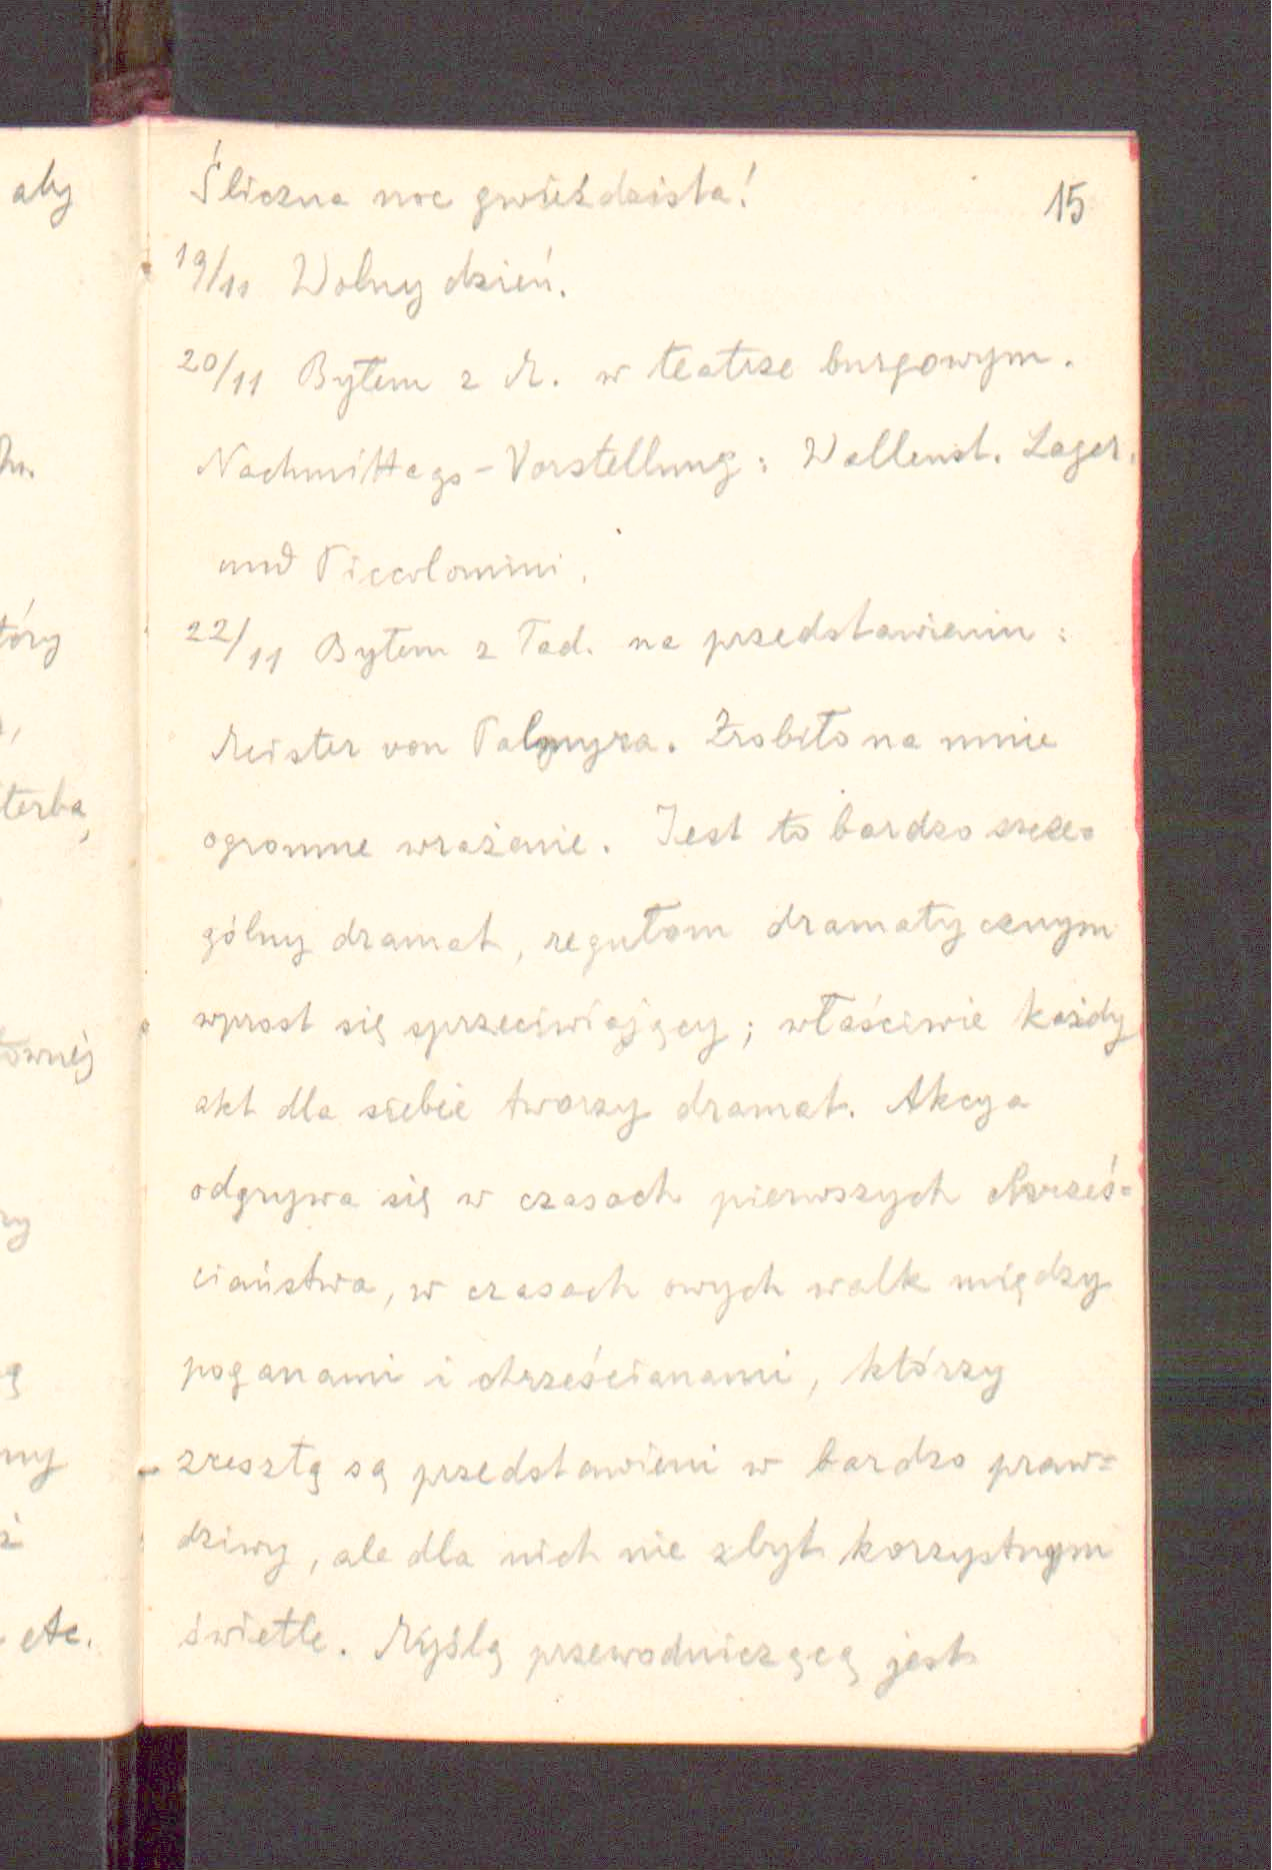 aby
hn.
tóry
terba,
łownéj
ry
ną
ny
ż
etc.
15
Śliczna noc gwieździsta!
19/11 Wolny dzień.
20/11 Byłem z M. w teatrze burgowym.
Nachmittags-Vorstellung: Wallenst. Lager.
und Piccolomini.
22/11 Byłem z Tad. na przedstawieniu:
Meister von Palmyra. Zrobiło na mnie
ogromne wrażenie. Jest to bardzo szcze=
gólny dramat, regułom dramatycznym
wprost się sprzeciwiający; właściwie każdy
akt dla siebie tworzy dramat. Akcya
odgrywa się w czasach pierwszych chrześ=
ciaństwa, w czasach owych walk między
poganami i chrześcianami, którzy
zresztą są przedstawieni w bardzo praw=
dziwy, ale dla nich nie zbyt korzystnym
świetle. Myślą przewodniczącą jest